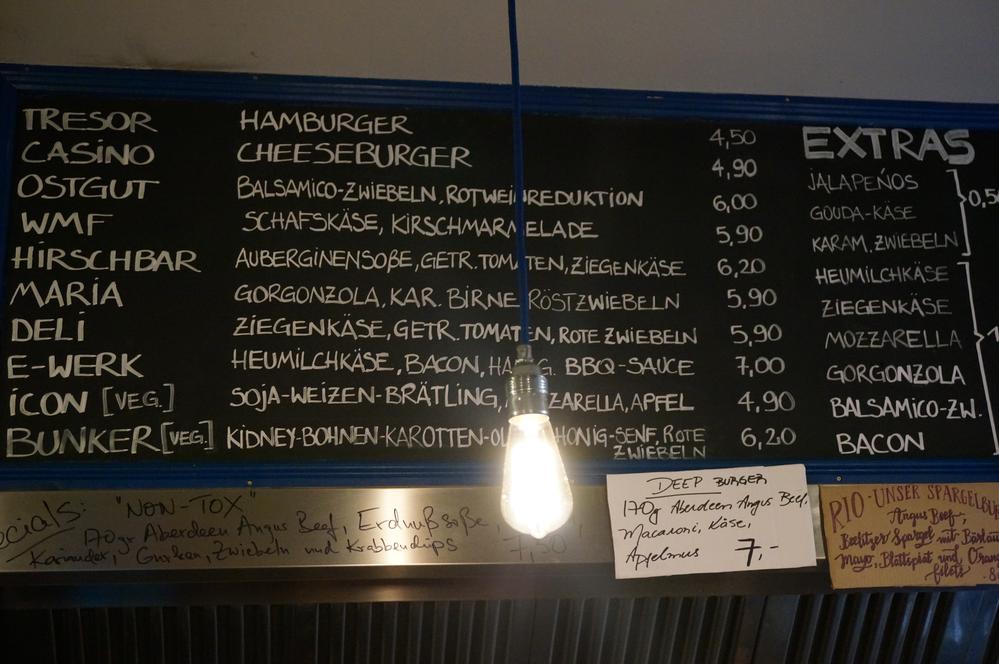 TRESOR HAMBURGER 4,50
CASINO CHEESEBURGER 4,90
OSTGUT BALSAMICO-ZWIEBELN, ROTWEINREDUKTION 6,00
WMF SCHAFSKÄSE, KIRSCHMARMELADE 5,90
HIRSCHBAR AUBERGINENSOßE, GETR. TOMATEN, ZIEGENKÄSE 6,20
MARIA GORGONZOLA, KAR. BIRNE RÖSTZWIEBELN 5,90
DELI ZIEGENKÄSE, GETR. TOMATEN, ROTE ZWIEBELN 5,90
E-WERK HEUMILCHKÄSE, BACON, BBQ-SAUCE 7,00
ICON [VEG.] SOJA-WEIZEN-BRÄTLING, APFEL 4,90
BUNKER [VEG.] KIDNEY-BOHNEN-KAROTTEN- HONIG-SENF, ROTE 6,20
ZWIEBELN
EXTRAS
JALAPEÑOS
GOUDA-KÄSE
KARAM. ZWIEBELN
HEUMILCHKÄSE
ZIEGENKÄSE
MOZZARELLA
GORGONZOLA
BALSAMICO-ZW.
BACON
"NON-TOX"
170gr Aberdeen Angus Beef, Erdnußsoße,
Gurken, Zwiebeln und Krabbenchips 7,50
DEEP BURGER
170g Aberdeen Angus Beef,
Macaroni, Käse,
Apfelmus 7,-
RIO-UNSER
Angus Beef,
Beelitzer Spargel mit
Mayo, Blattspinat und
filets